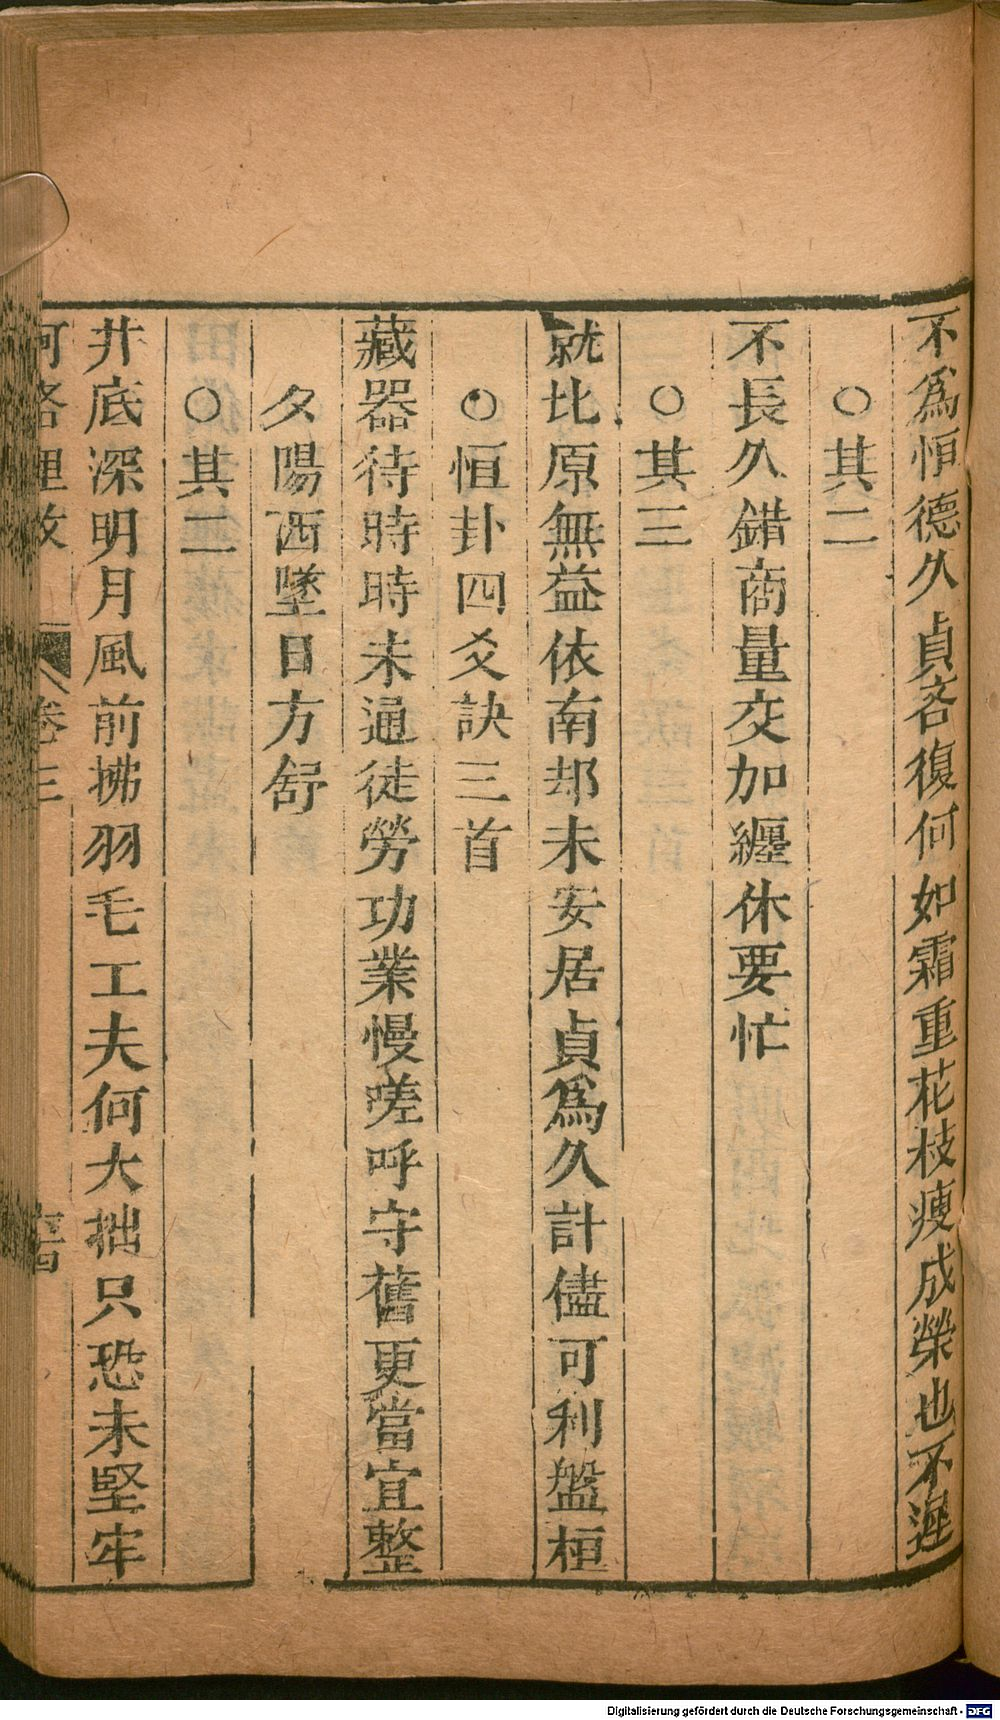 不爲恒德久貞吝復何如霜重花枝瘦成榮也不遲
○其二
不長久錯商量交加纏休要忙
○其三
就比原無益依南却未安居貞爲久計儘可利盤桓
○恒卦四爻訣三首
藏器待時時未通徒勞功業慢嗟呼守舊更當宜整
夕陽西墜日方舒
○其二
井底深明月風前拂羽毛工夫何大拙只恐未堅牢
河洛理數 卷三
Digitalisierung gefördert durch die Deutsche Forschungsgemeinschaft - DFG